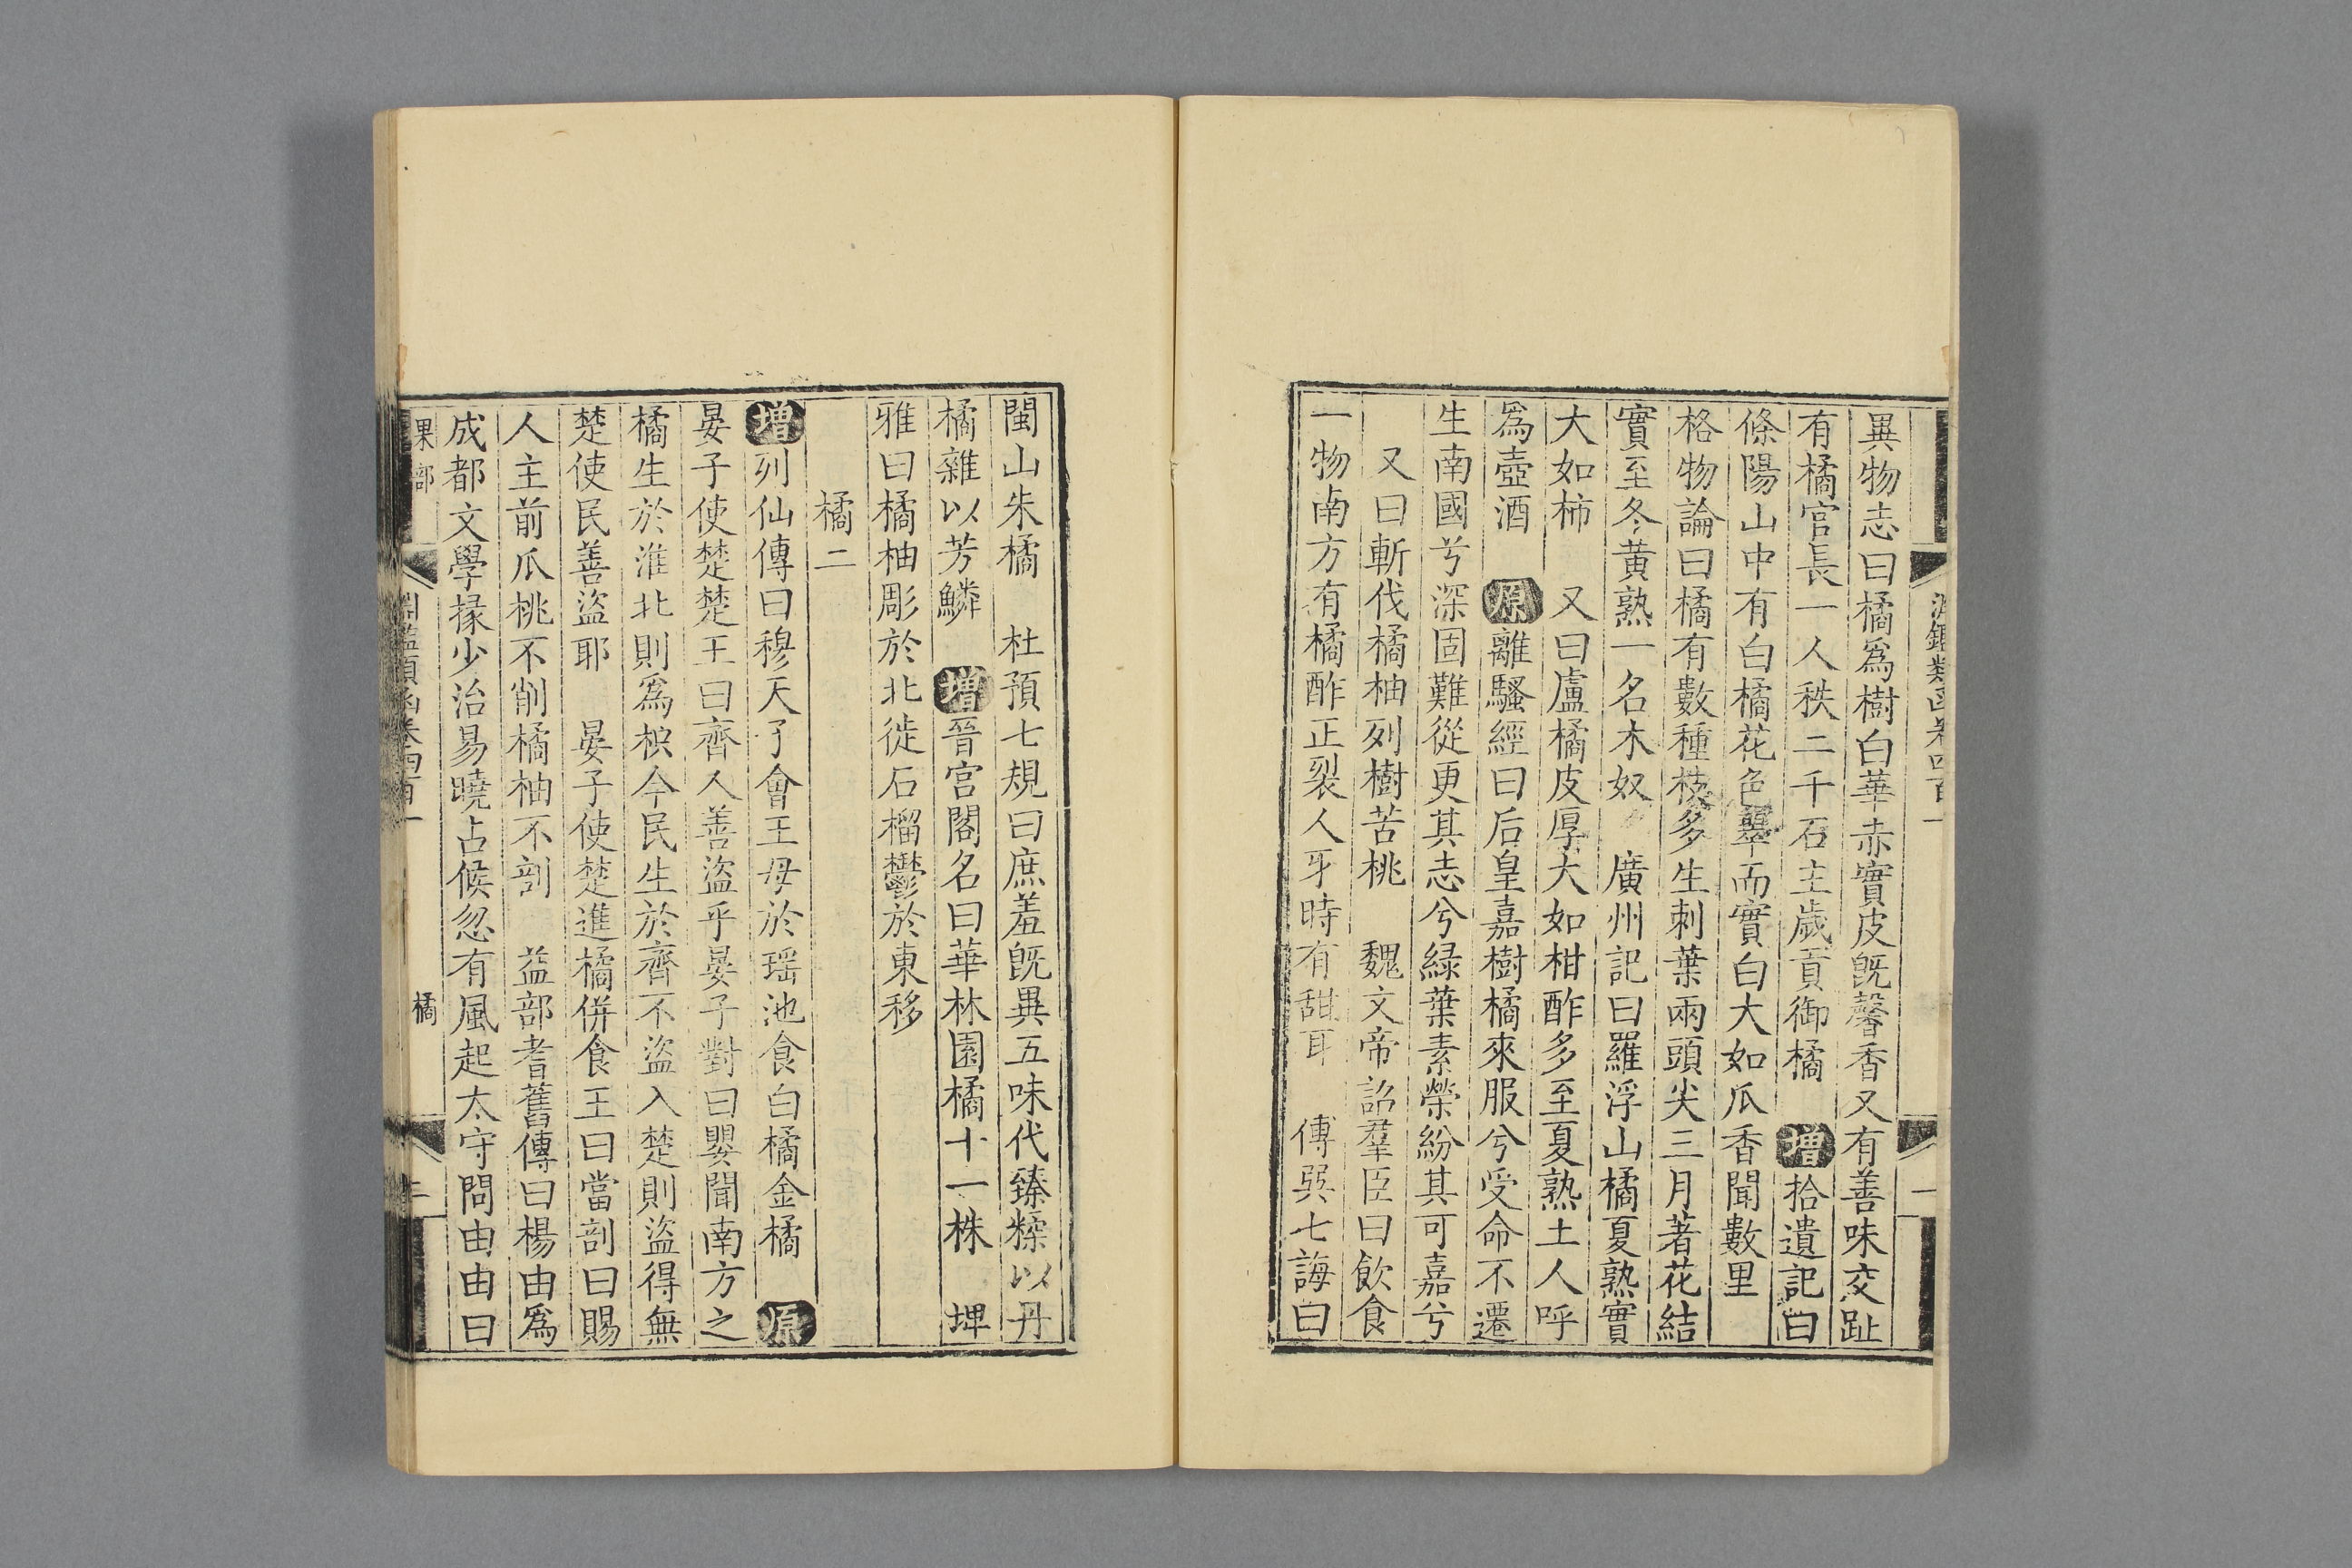 淵鑑類函卷四百一
一
異物志曰橘爲樹白華赤實皮旣馨香又有善味交趾
有橘官長一人秩二千石主歲貢御橘　增拾遺記曰
條陽山中有白橘花色翠而實白大如瓜香聞數里
格物論曰橘有數種枝多生刺葉兩頭尖三月著花結
實至冬黃熟一名木奴　廣州記曰羅浮山橘夏熟實
大如柿　又曰盧橘皮厚大如柑酢多至夏熟土人呼
爲壺酒　原離騷經曰后皇嘉樹橘來服兮受命不遷
生南國兮深固難從更其志兮綠葉素榮紛其可嘉兮
又曰斬伐橘柚列樹苦桃　魏文帝詔羣臣曰飲食
一物南方有橘酢正裂人牙時有甜耳　傅巽七誨曰
閩山朱橘　杜預七規曰庶羞旣異五味代臻糅以丹
橘雜以芳鱗　增晉宮閣名曰華林園橘十一株　埤
雅曰橘柚彫於北徙石榴鬱於東移
橘二
增列仙傳曰穆天子會王母於瑤池食白橘金橘　原
晏子使楚楚王曰齊人善盜乎晏子對曰嬰聞南方之
橘生於淮北則爲枳今民生於齊不盜入楚則盜得無
楚使民善盜耶　晏子使楚進橘併食王曰當剖曰賜
人主前瓜桃不削橘柚不剖　益部耆舊傳曰楊由爲
成都文學掾少治易曉占候忽有風起太守問由由曰
果部
淵鑑類函卷四百一
橘
二